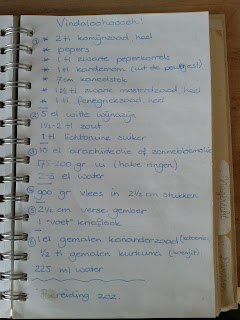 Vindaloohooooh!
① * 2 tl komijnzaad heel
* pepers
* 1 tl zwarte peperkorrels
* 1 tl kardemom (uit de peultjes!)
* 7cm kaneelstok
* 1½ tl zwarte mosterdzaad, heel
* 1 tl fenegriekzaad, heel
② 5 el witte wijnazijn
1½-2 tl zout
1 tl lichtbruine suiker
③ 10 el arachideolie of zonnebloemolie
175-200 gr ui (halve ringen)
el water
④ 900 gr vlees in 2½ cm stukken
⑤ 2½ cm verse gember
1 "voet" knoflook
⑥ 1 el gemalen korianderzaad
½ tl gemalen kurkuma (koenjit)
225 ml water
Bereiding z.o.z.